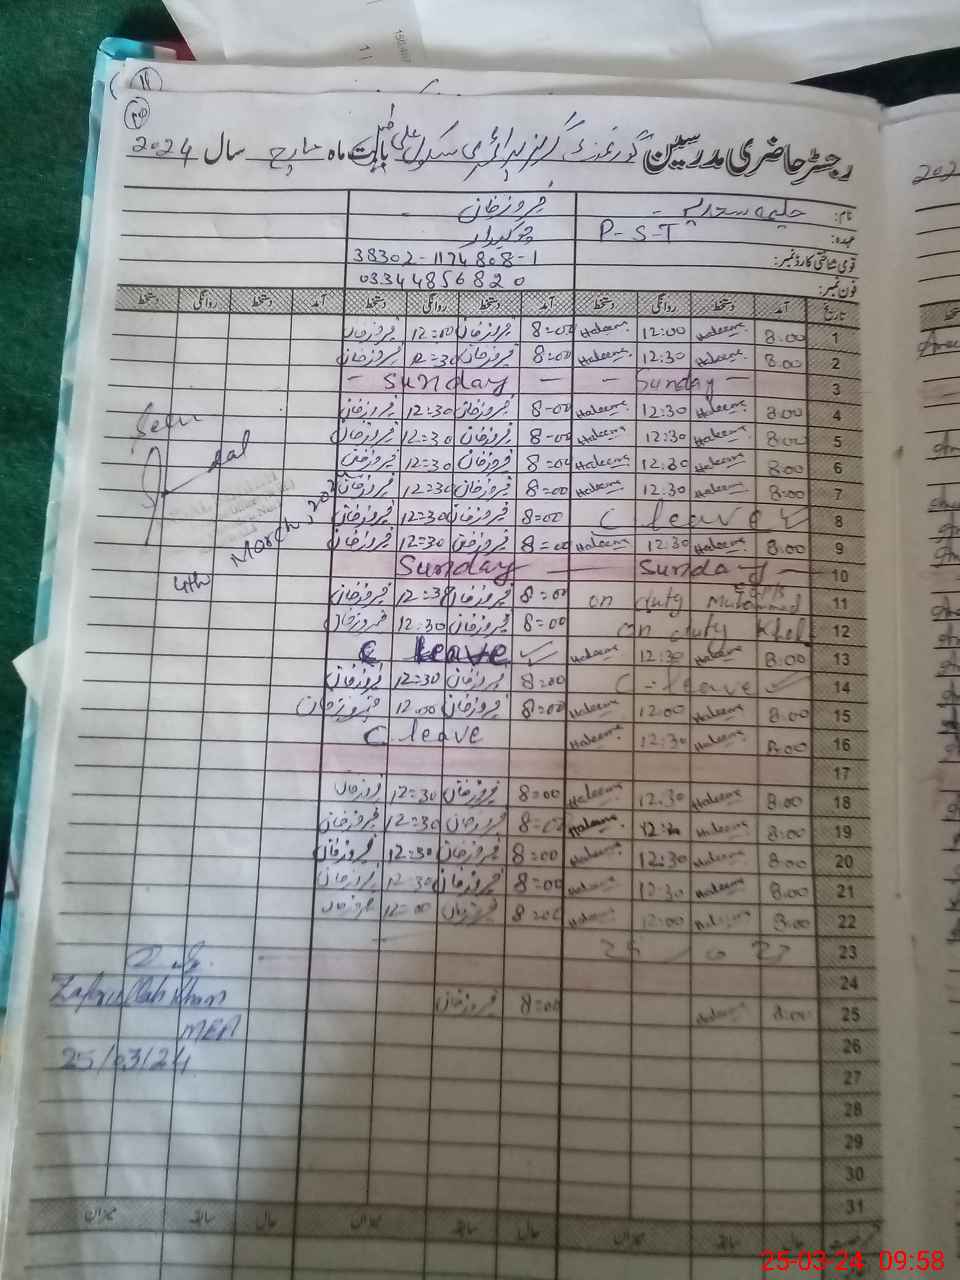 رجسٹر حاضری مدرسین گورنمنٹ گرلز پرائمری سکول بابت ماہ مارچ سال 2024
نام: حلیمہ سعدیہ فیروز خان
عہدہ: P-S-T چوکیدار
قومی شناختی کارڈ نمبر: 38302-1174808-1
فون نمبر: 03344856820
تاریخ آمد دستخط روانگی دستخط آمد دستخط روانگی دستخط آمد دستخط روانگی دستخط
1 8.00 Haleema 12:00 Haleema 8=00 فیروز خان 12=00 فیروز خان
2 8.00 Haleema 12:30 Haleema 8=00 فیروز خان 12=30 فیروز خان
3 - Sunday - - Sunday -
4 8.00 Haleema 12:30 Haleema 8=00 فیروز خان 12=30 فیروز خان
5 8:00 Haleema 12:30 Haleema 8=00 فیروز خان 12=30 فیروز خان
6 8:00 Haleema 12:30 Haleema 8=00 فیروز خان 12=30 فیروز خان
7 8:00 Haleema 12:30 Haleema 8=00 فیروز خان 12=30 فیروز خان
8 C leave 8=00 فیروز خان 12=30 فیروز خان
9 8.00 Haleema 12:30 Haleema 8=00 فیروز خان 12=30 فیروز خان
10 Sunday - Sunday
11 on duty Muhammad 8=00 فیروز خان 12=30 فیروز خان
12 on duty Khel 8=00 فیروز خان 12=30 فیروز خان
13 8:00 Haleema 12:30 Haleema C leave
14 C-leave 8=00 فیروز خان 12=30 فیروز خان
15 8.00 Haleema 12:00 Haleema 8=00 فیروز خان 12:00 فیروز خان
16 8.00 Haleema 12:30 Haleema C leave
17
18 8.00 Haleema 12.30 Haleema 8=00 فیروز خان 12=30 فیروز خان
19 8:00 Haleema Haleema 8=00 فیروز خان 12=30 فیروز خان
20 8:00 Haleema 12:30 Haleema 8=00 فیروز خان 12=30 فیروز خان
21 8.00 Haleema 12:30 Haleema 8=00 فیروز خان 12=30 فیروز خان
22 8.00 Haleema 12:00 Haleema 8=00 فیروز خان 12=00 فیروز خان
23
24
25 8.00 Haleema 8=00 فیروز خان
26
27
28
29
30
31
Seen
4th March, 202
Zafarullah Khan
MEA
25/03/24
میزان سابقہ حال میزان سابقہ حال میزان سابقہ حال
25-03-24 09:58